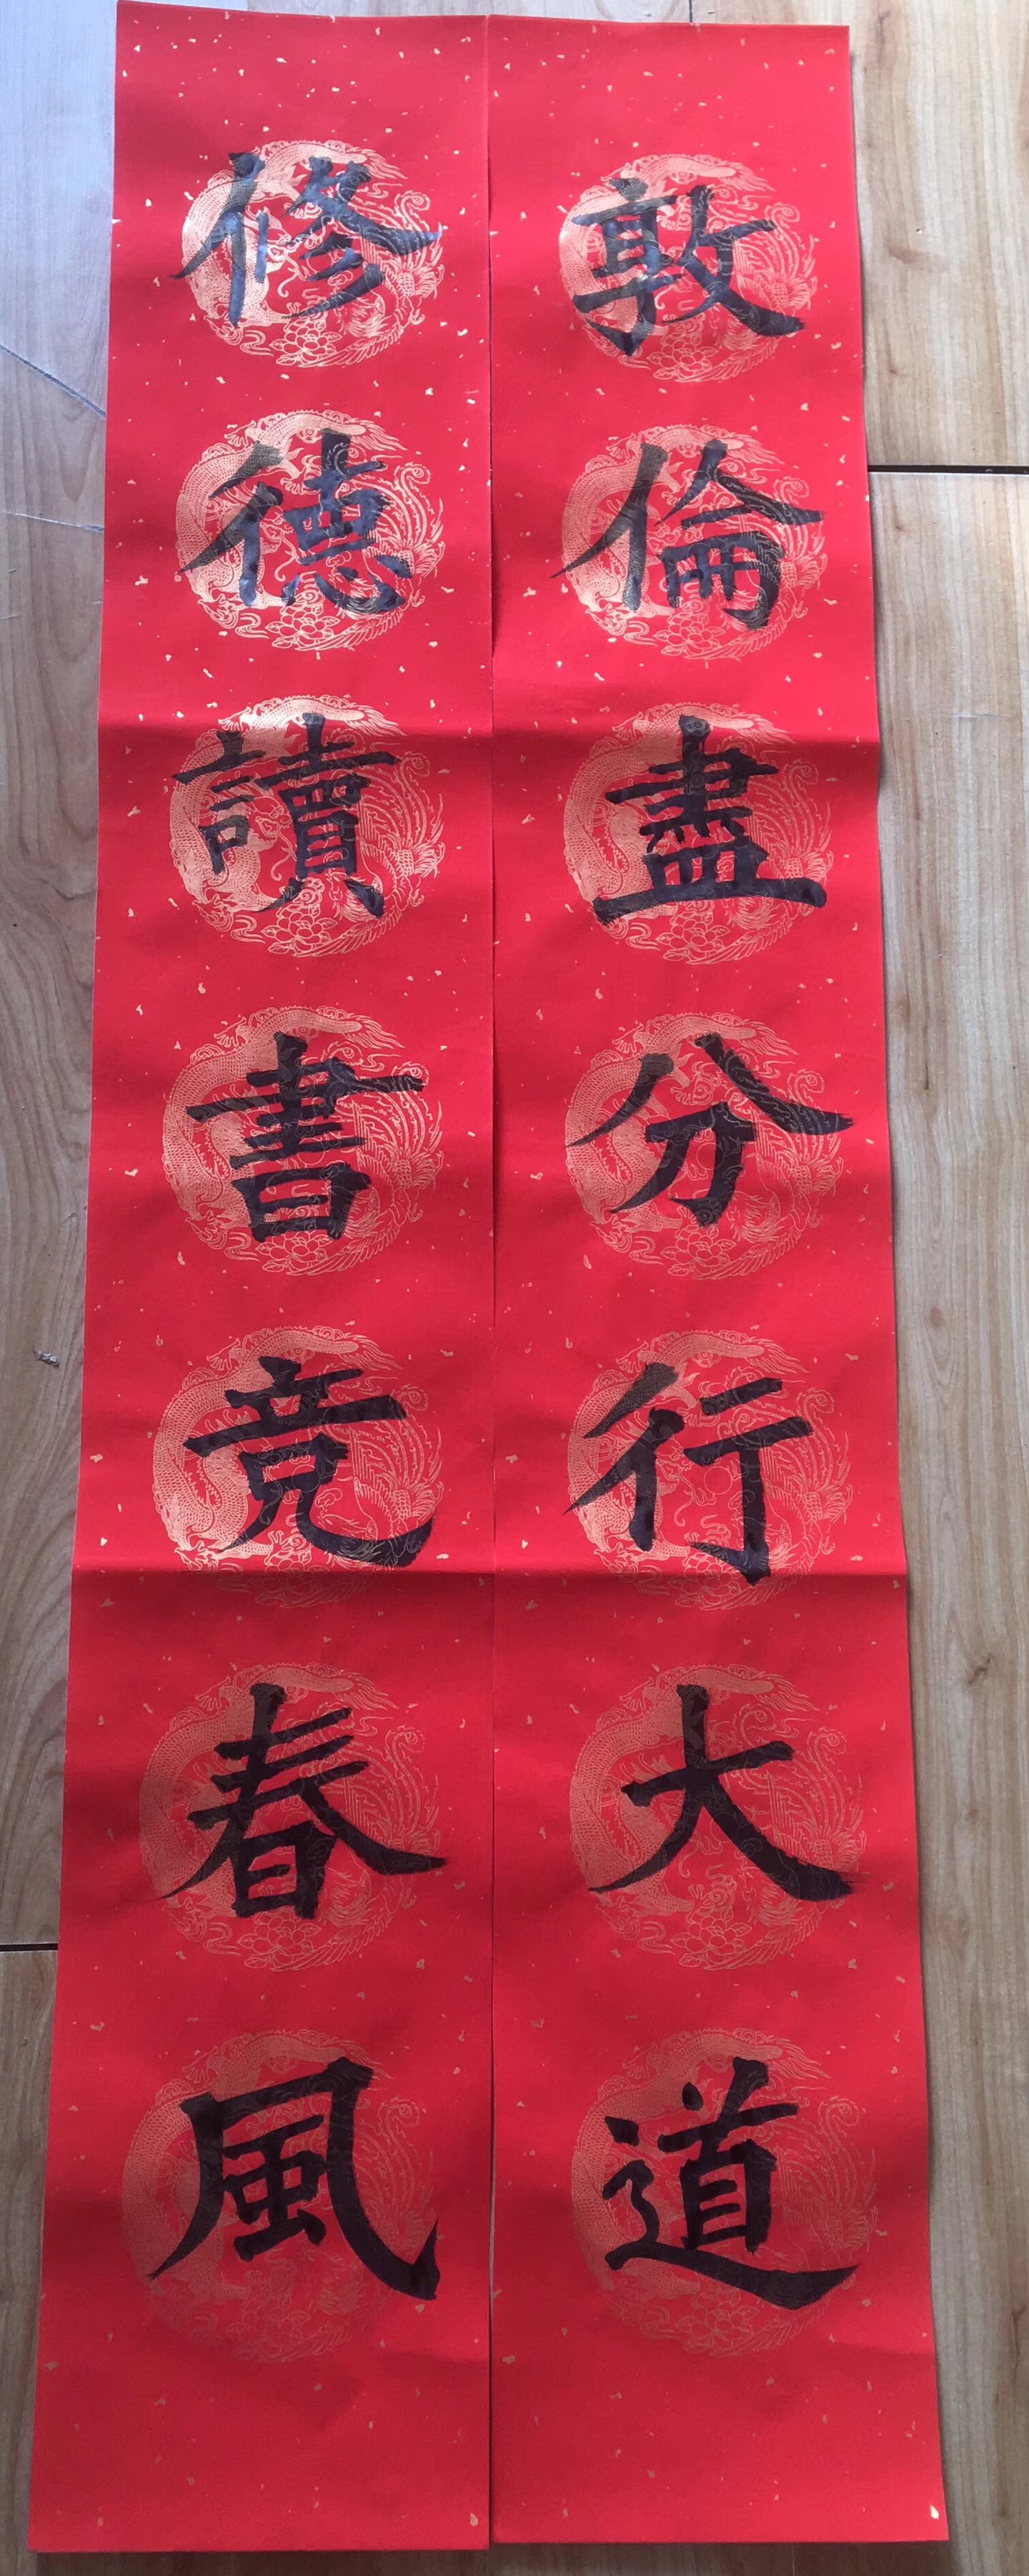 敦倫盡分行大道
修德讀書竞春風